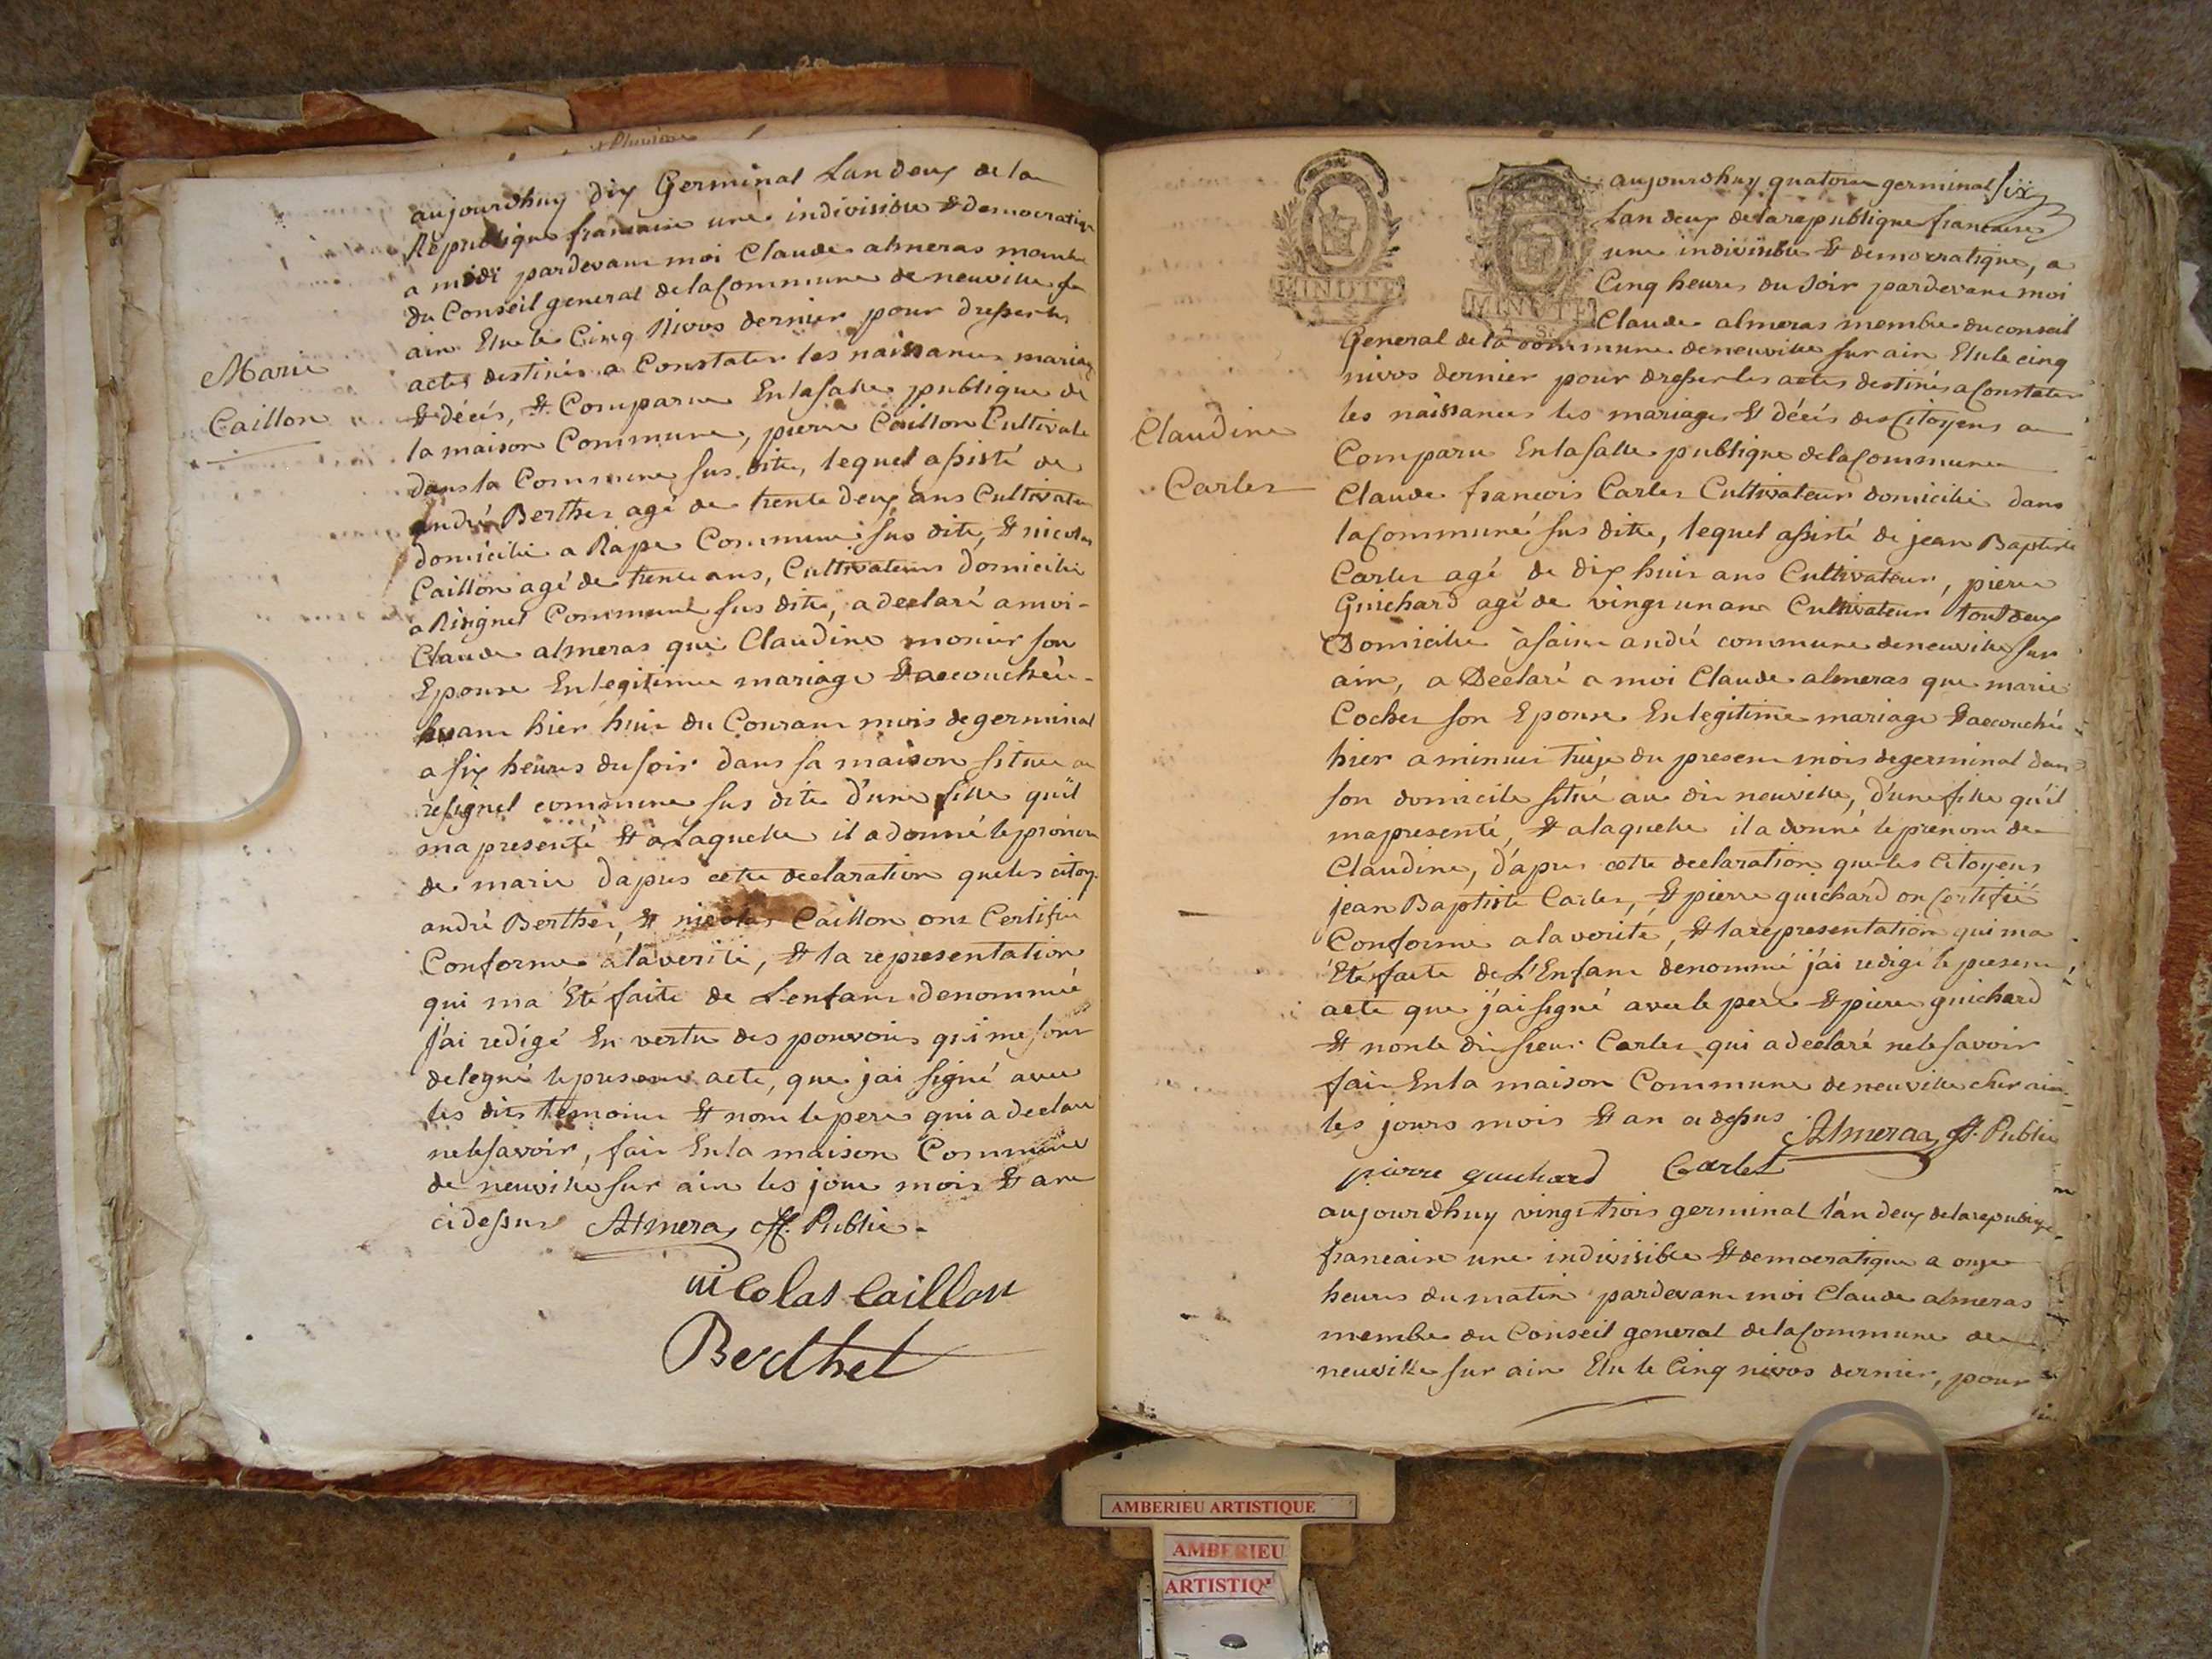 aujourdhuy dix Germinal Lan deux de la
République francaise une indivisible & democratique
a midi pardevant moi Claude almeras membre
du Conseil general de la Commune de neuville sur
ain Elu le Cinq Nivos dernier pour dresser les
actes destinés a Constater les naissances mariages
& décés, & Comparu En la salle publique de
la maison Commune, pierre Caillon Cultivateur
dans la Commune sus dite, lequel assisté de
andré Berthet agé de trente deux ans Cultivateur
domicilié a Rape Commune sus dite, & nicolas
Caillon agé de trente ans, Cultivateur domicilié
a Résignel Commune sus dite, a declaré a moi
Claude almeras que Claudine monier son
Epouse En legitime mariage & accouchée
avant hier huit du Courant mois de germinal
a six heures du soir dans sa maison située au
resignel commune sus dite d'une fille qu'il
ma presenté & a Laquelle il a donné le prénom
de marie dapres cette declaration que les citoy.
andré Berthet, & nicolas Caillon ont Certifié
Conforme a la verité, & la representation
qui ma Eté faite de L'enfant denommé
J'ai redigé En vertu des pouvoirs qui me sont
delegué le present acte, que jai signé avec
les dits temoins & nom le pere qui a declaré
ne le savoir, fait En la maison Commune
de neuville sur ain les jour mois & an
ci dessus Almeras off. Public
nicolas Caillon
Berthet
Marie
Caillon
six
MINUTE
4 S.
MINUTE
4 S.
aujourdhuy quatorze germinal
Lan deux de la republique francaise
une indivisible & democratique, a
Cinq heures du soir pardevant moi
Claude almeras membre du conseil
General de la commune de neuville sur ain Elu le cinq
nivos dernier pour dresser les actes destinés a Constater
les naissances les mariages & décés des Citoyens a
Comparu En la salle publique de la Commune
Claude francois Carlet Cultivateur domicilié dans
la Commune sus dite, lequel assisté de jean Baptiste
Carlet agé de dix huit ans Cultivateur, pierre
Guichard agé de vingt un ans Cultivateur tout deux
Domicilié à saint andré commune de neuville sur
ain, a Declaré a moi Claude almeras que marie
Cochet son Epouse En legitime mariage & accouché
hier a minuit treize du present mois de germinal dans
son domicile situé au dit neuville, d'une fille qu'il
ma presenté, & a laquelle il a donné le prenom de
Claudine, d'apres cette declaration que les Citoyens
jean Baptiste Carlet, & pierre guichard on Certifié
Conforme a la verité, & la representation qui ma
Eté faite de L'Enfant denommé j'ai redigé le present
acte que j'ai signé avec le pere & pierre guichard
& non le dit sieur Carlet qui a declaré ne le savoir
fait En la maison Commune de neuville sur ain
les jours mois & an ci dessus Almeras off. Public
pierre guichard Carlet
aujourdhuy vingt trois germinal l'an deux de la republique
francaise une indivisible & democratique a onze
heures du matin pardevant moi Claude almeras
membre du Conseil general de la Commune de
neuville sur ain Elu le Cinq nivos dernier, pour
Claudine
Carlet
AMBERIEU ARTISTIQUE
AMBERIEU
ARTISTIQ